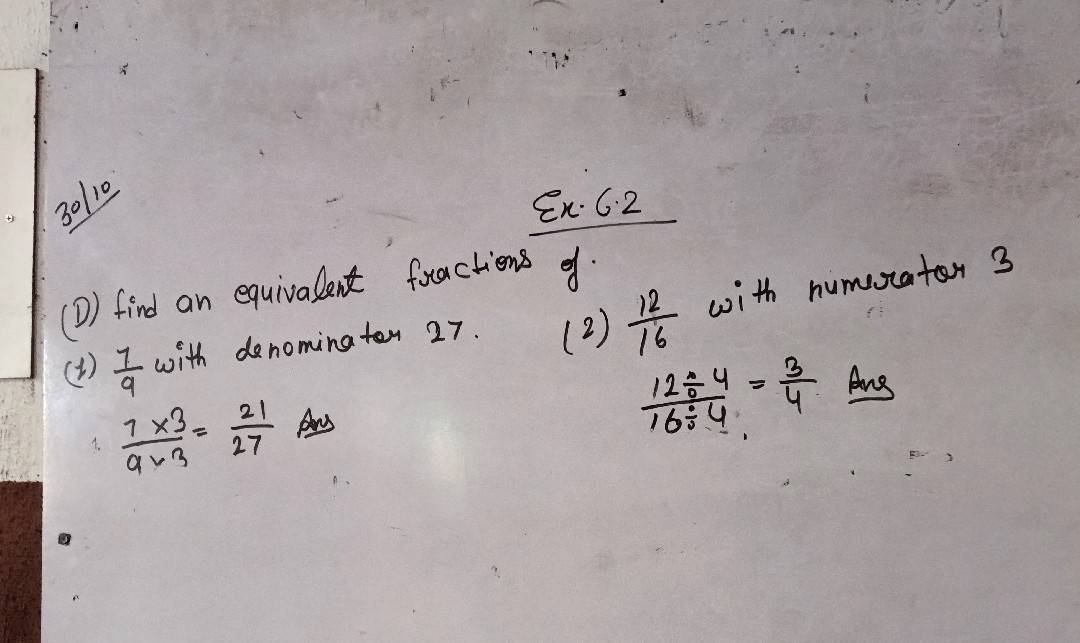 30/10
Ex. 6.2
(D) find an equivalent fractions of.
(1) 7/9 with denominator 27.
7 x3 / 9 x 3 = 21/27 Ans
(2) 12/16 with numerator 3
12 ÷ 4 / 16 ÷ 4 = 3/4 Ans